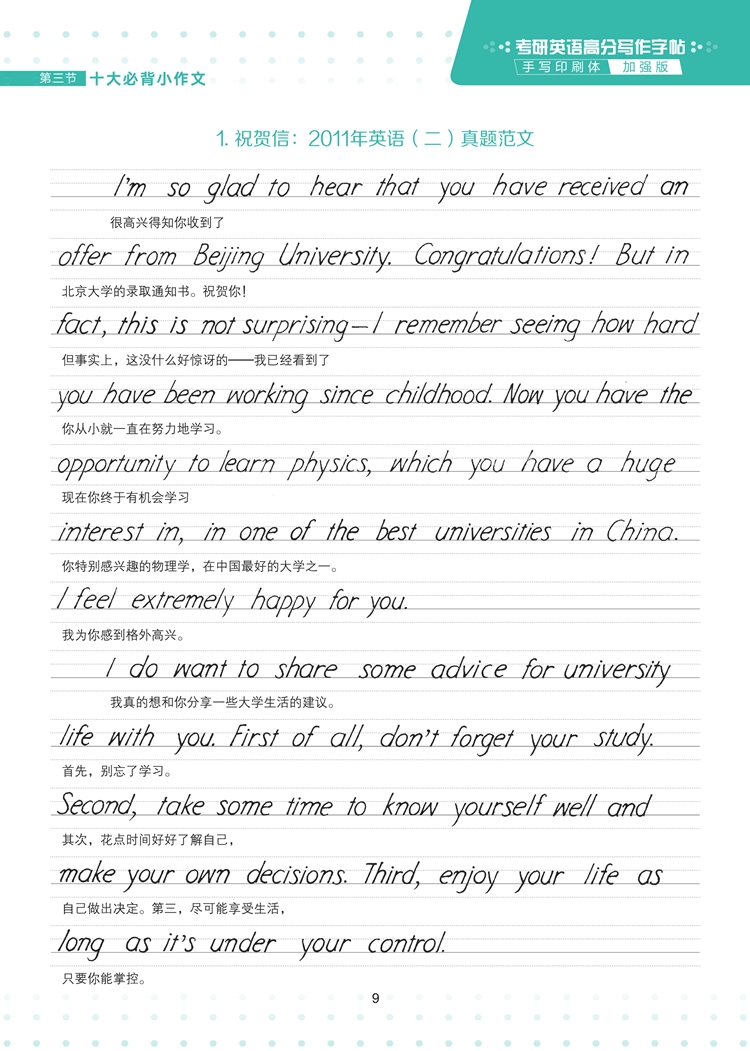 考研英语高分写作字帖
手写印刷体 加强版
第三节 十大必背小作文
1. 祝贺信：2011年英语（二）真题范文
I'm so glad to hear that you have received an
很高兴得知你收到了
offer from Beijing University. Congratulations! But in
北京大学的录取通知书。祝贺你！
fact, this is not surprising—I remember seeing how hard
但事实上，这没什么好惊讶的——我已经看到了
you have been working since childhood. Now you have the
你从小就一直在努力地学习。
opportunity to learn physics, which you have a huge
现在你终于有机会学习
interest in, in one of the best universities in China.
你特别感兴趣的物理学，在中国最好的大学之一。
I feel extremely happy for you.
我为你感到格外高兴。
I do want to share some advice for university
我真的想和你分享一些大学生活的建议。
life with you. First of all, don't forget your study.
首先，别忘了学习。
Second, take some time to know yourself well and
其次，花点时间好好了解自己，
make your own decisions. Third, enjoy your life as
自己做出决定。第三，尽可能享受生活，
long as it's under your control.
只要你能掌控。
9